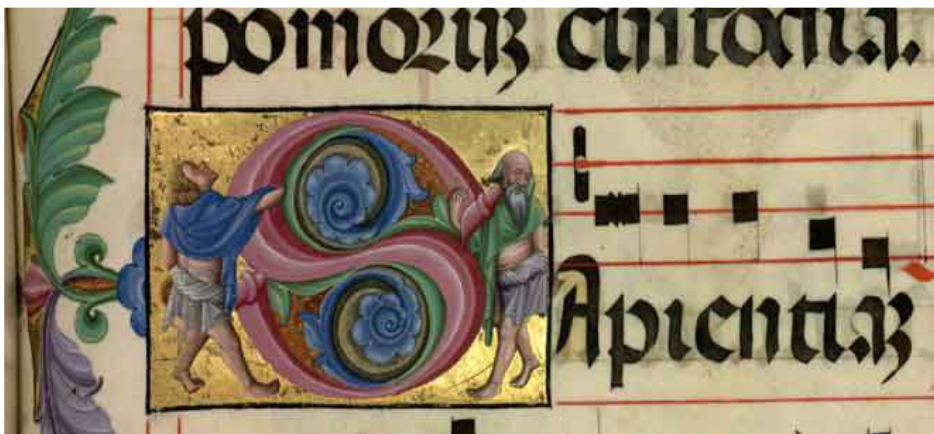 pomoruz custodia.
SApientiaz